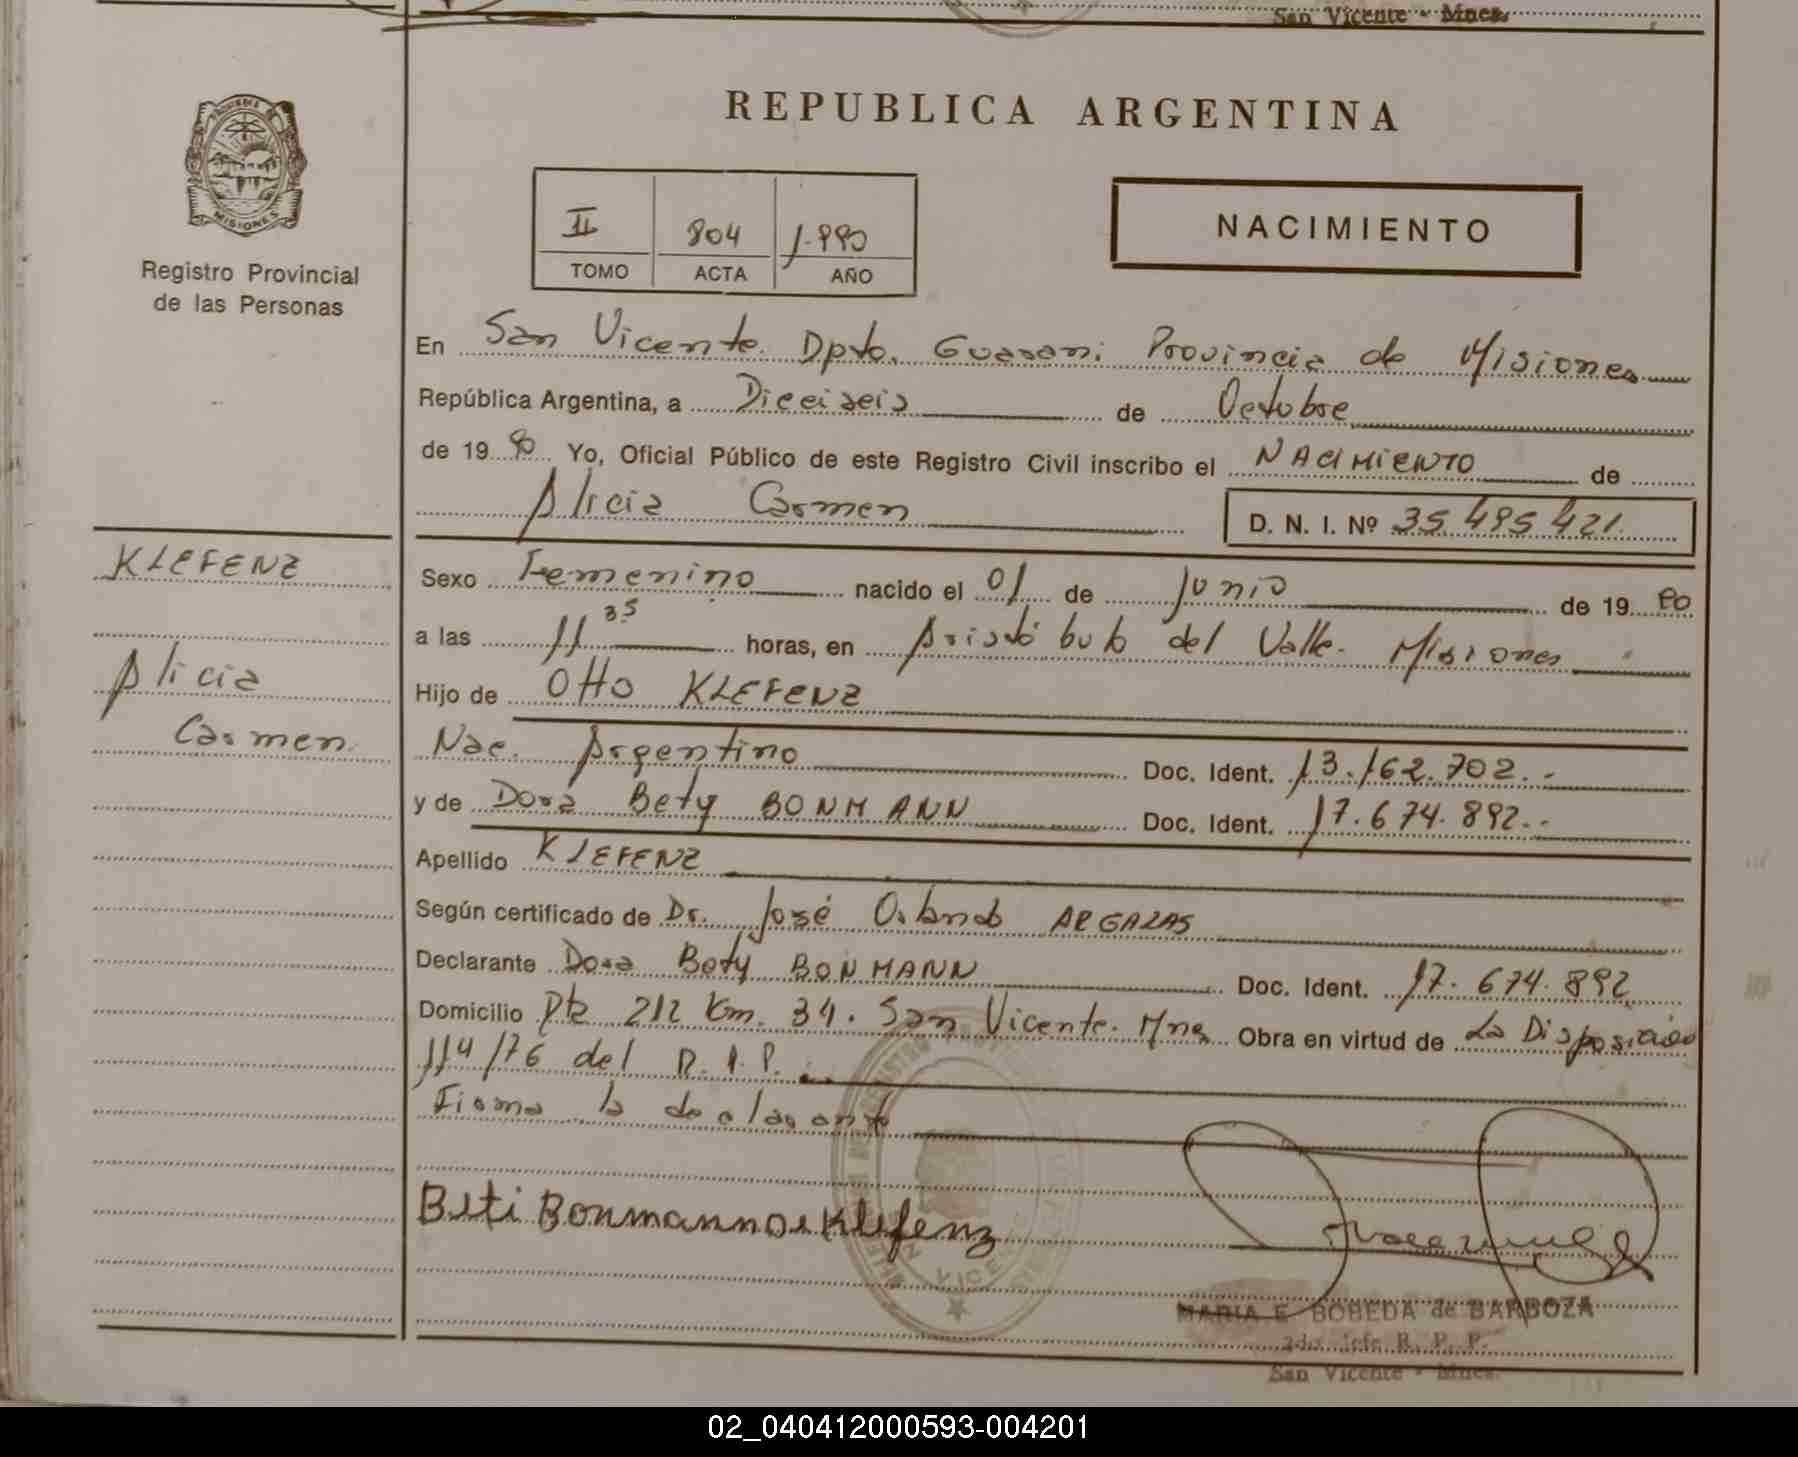 San Vicente - Mnes.
REPUBLICA ARGENTINA
MISIONES
Registro Provincial
de las Personas
II 804 1.990
TOMO ACTA AÑO
NACIMIENTO
En San Vicente. Dpto. Guarani Provincia de Misiones
República Argentina, a Dieciseis de Octubre
de 19 90 Yo, Oficial Público de este Registro Civil inscribo el NACIMIENTO de
Alicia Carmen D. N. I. Nº 35.495.421
KLEFENZ
Alicia
Carmen
Sexo Femenino nacido el 01 de Junio de 19 90
a las 11 35 horas, en Aristóbulo del Valle. Misiones
Hijo de Otto KLEFENZ
Nac. Argentino Doc. Ident. 13.162.702.-
y de Dora Bety BONMANN Doc. Ident. 17.674.892.-
Apellido KLEFENZ
Según certificado de Dr. José Orlando ARGAZAS
Declarante Dora Bety BONMANN Doc. Ident. 17.674.892
Domicilio Pte 212 Km. 34. San Vicente. Mnes Obra en virtud de La Disposición
114/76 del R.P.P.
Firma la declarante
Beti Bonmann de Klefenz
MARIA E BOBEDA de BARBOZA
2do. Jefe R. P. P.
San Vicente - Mnes.
02_040412000593-004201